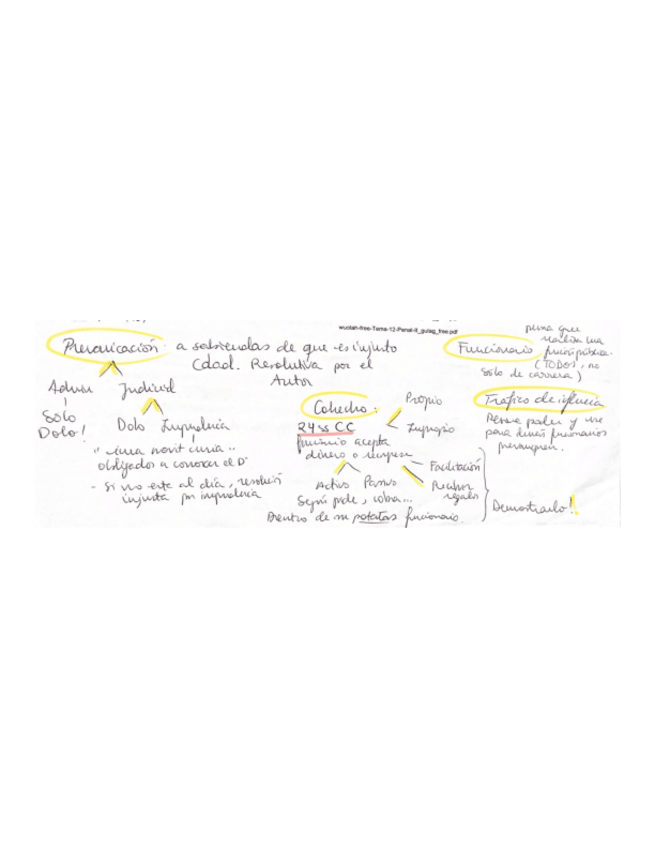 wuolah-free-Tema-12-Penal-II_gulag_free.pdf
Prevaricación: a sabiendas de que es injusto
Cdad. Resolutiva por el
Autor
Admva Judicial
Sólo
Dolo!
Dolo Imprudencia
"iura novit curia"
obligados a conocer el Dº
- Si no esta al día, resolución
injusta por imprudencia
Cohecho:
Propio
Impropio
24 ss CC
funcionario acepta
dinero o
Activo Pasivo
Facilitación
Recibir
regalos
Según pide, cobra...
Dentro de su potestas funcionario.
Demostrarlo!
Funcionario
persona que
realiza una
función pública
(TODOS, no
sólo de carrera)
Trafico de influencia
poder y use
para funcionarios
prevariquen.